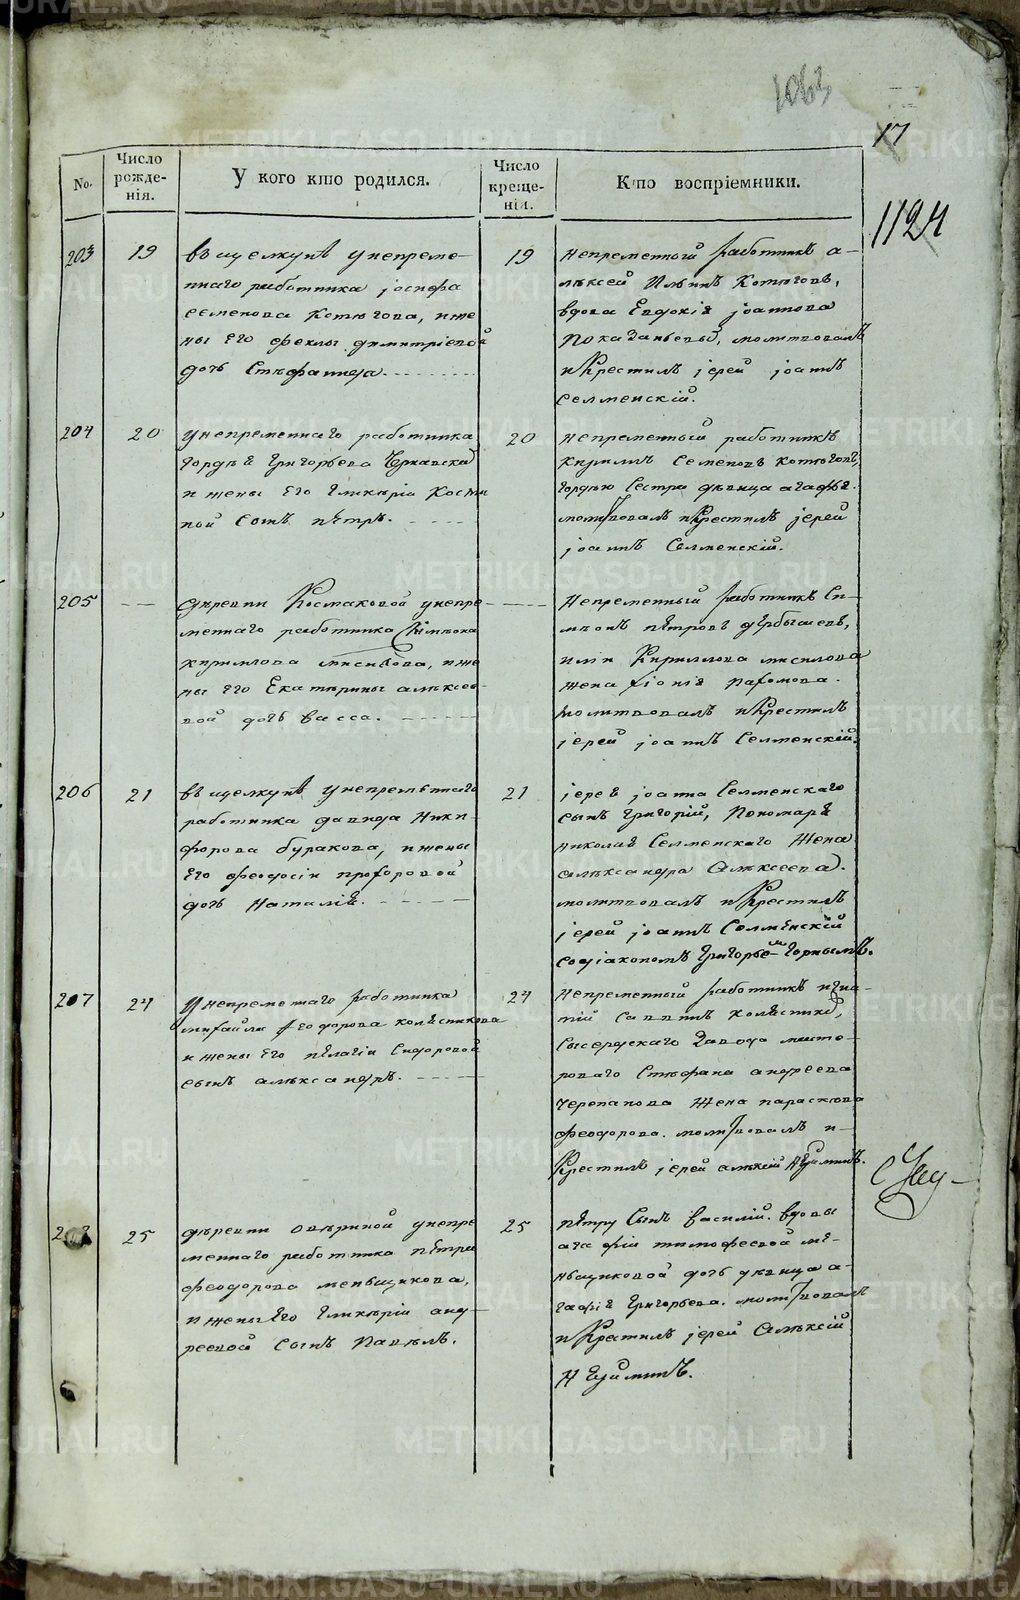 1063
17
1124
No.
Число рожде-нія.
У кого кто родился.
Число креще-нія.
Кто воспріемники.
203
19
въ щелкунѣ у непреме-
ннаго работника іосифа
семенова Котюгова, и же
ны его феклы димитріевой
дочь Стефанида.
19
Непременный работникъ а-
лѣксей Ильинъ Котюговъ,
вдова Евдокія іоаннова
молитвовалъ
и Крестилъ іерей іоаннъ
Селменскій.
204
20
у непременнаго работника
Гордѣя Григорьева
и жены его Гликѣріи Косми
ной сынъ пѣтръ.
20
непременный работникъ
Кириллъ Семеновъ Котюговъ,
Гордѣю Сестра дѣвица агафья.
молитвовалъ и Крестилъ іерей
іоаннъ Селменскій.
205
дѣревни Космаковой у непре
меннаго работника Симеона
кирилова, и же
ны его Екатѣрины алѣксее-
вой дочь васса.
Непременный работникъ Си-
меонъ пѣтровъ дѣрбышевъ,
Кириллова
жена хіонія пахомова.
молитвовалъ и Крестилъ
іерей іоаннъ Селменскій.
206
21
въ щелкунѣ у непремѣннаго
работника давида Ники-
форова буракова, и жены
его феодосіи прохоровой
дочь Наталія.
21
іерея іоанна Селменскаго
сынъ Григорій, Пономаря
николая Селменскаго Жена
алѣксандра Алѣксеева.
молитвовалъ и Крестилъ
іерей іоаннъ Селменскій
со діакономъ Григорьемъ Горнымъ.
207
24
У непременнаго работника
михайлы феодорова колѣсникова
и жены его пѣлагіи Сидоровой
сынъ алѣксандръ.
24
Непременный работникъ игна-
тій Саввинъ колѣсник,
Сысертскаго Завода масте-
роваго Стѣфана андреева
Черепанова Жена параскева
феодорова. молитвовалъ и
Крестилъ іерей алѣксій
25
дѣревни у непре
меннаго работника пѣтра
феодорова меньщикова,
и жены его Гликѣріи анд-
реевой Сынъ Павѣлъ.
25
пѣтру Сынъ василій. вдовы
агафіи тимофеевой мѣ-
ньщиковой дочь дѣвица а-
гафія Григорьева. молитвовалъ
и Крестилъ іерей Алѣксій
METRIKI.GASO-URAL.RU